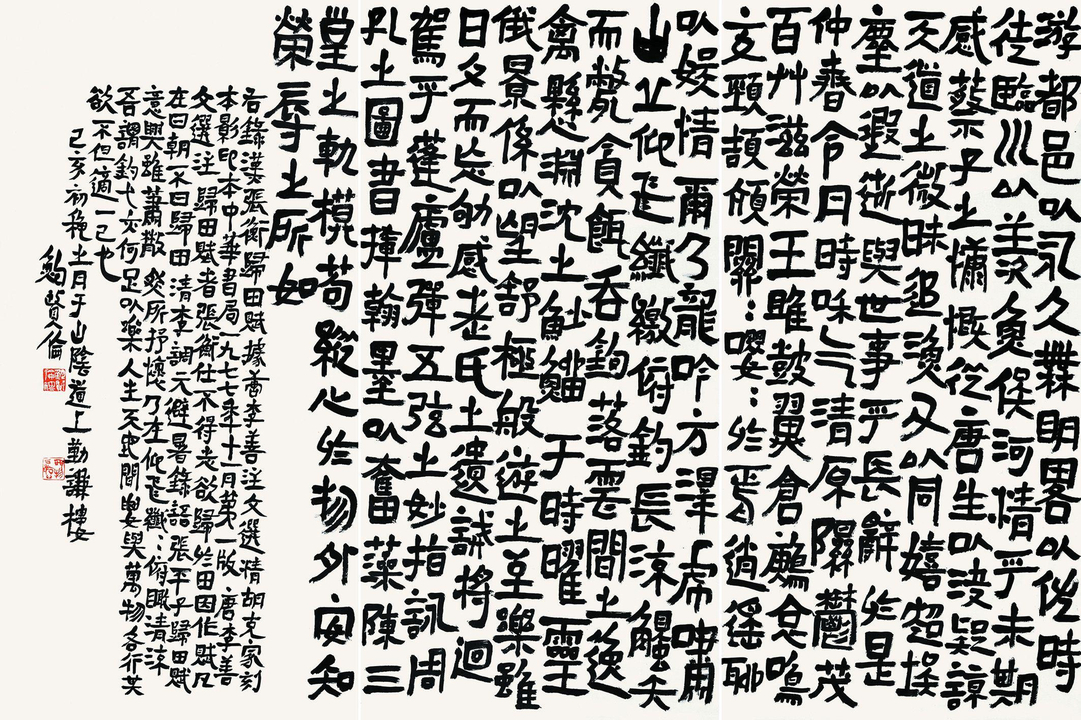 游都邑以永久無明略以佐時
徒臨川以羨魚俟河情乎未期
感蔡子之慷慨從唐生以決疑諒
天道之微昧追漁父以同嬉超埃
塵以遐逝與世事乎長辭於是
仲春令日時和氣清原隰鬱茂
百艸滋榮王雎鼓翼倉鶊哀鳴
交頸頡頏關:嚶:於焉逍遙聊
以娛情爾乃龍吟方澤虎嘯
山丘仰飛纖繳俯釣長流觸矢
而斃貪餌吞鉤落雲間之逸
禽懸淵沈之魦鰡于時曜靈
俄景係以望舒極般遊之至樂雖
日夕而忘劬感老氏之遺誡將迴
駕乎蓬廬彈五弦之妙指詠周
孔之圖書揮翰墨以奮藻陳三
皇之軌模苟縱心於物外安知
榮辱之所如
右錄漢張衡歸田賦據李善注文選清胡克家刻
本影印本中華書局一九七七年十一月第一版唐李善
文選注歸田賦者張衡仕不得志欲歸於田因作賦凡
在曰朝不曰歸田清李調元避暑錄話張平子歸田賦
意興雖蕭散然所抒懷乃在仰飛纖俯瞰清流
吾謂釣弋亦何足以樂人生天地間要與萬物各得其
欲不但適一己也
己亥初秋之月于山陰道上勤謙樓
鮑賢倫